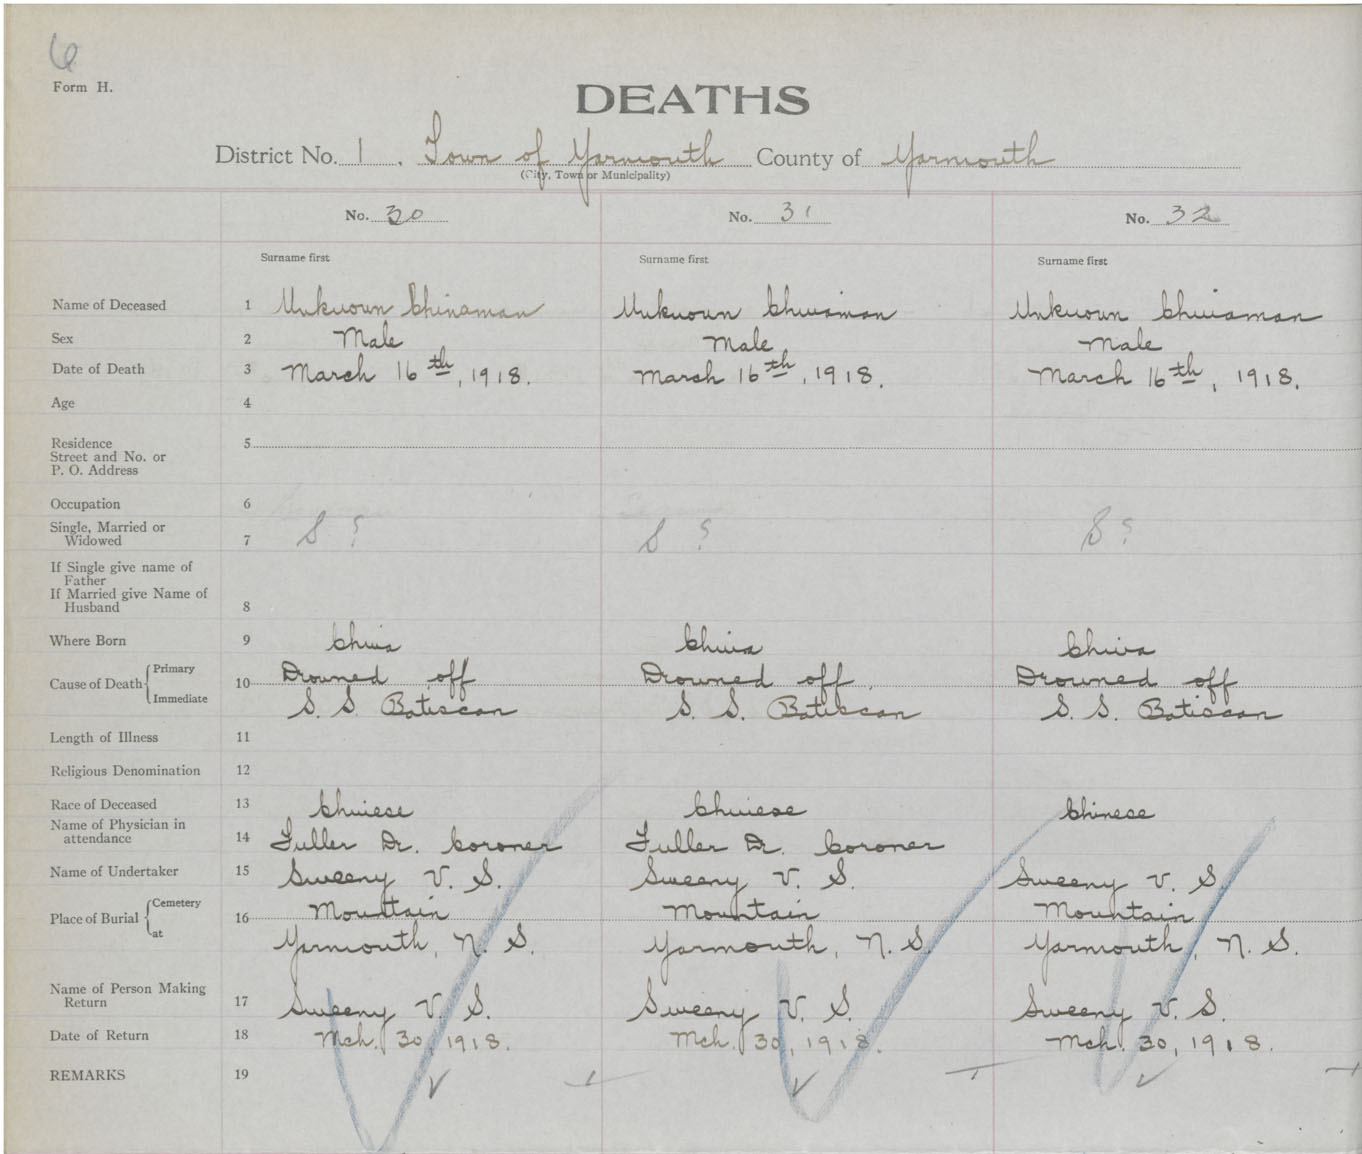 6
Form H.
DEATHS
District No. 1. Town of Yarmouth County of Yarmouth
(City, Town or Municipality)
No. 30 No. 31 No. 32
Surname first Surname first Surname first
Name of Deceased 1 Unknown Chinaman Unknown Chinaman Unknown Chinaman
Sex 2 Male Male Male
Date of Death 3 March 16th, 1918. March 16th, 1918. March 16th, 1918.
Age 4
Residence 5
Street and No. or
P. O. Address
Occupation 6
Single, Married or
Widowed 7 S ? S ? S ?
If Single give name of
Father
If Married give Name of
Husband 8
Where Born 9 China China China
Cause of Death Primary 10 Drowned off Drowned off Drowned off
Immediate S. S. Batiscan S. S. Batiscan S. S. Batiscan
Length of Illness 11
Religious Denomination 12
Race of Deceased 13 Chinese Chinese Chinese
Name of Physician in
attendance 14 Fuller Dr. Coroner Fuller Dr. Coroner
Name of Undertaker 15 Sweeny V. S. Sweeny V. S. Sweeny V. S.
Place of Burial Cemetery 16 Mountain Mountain Mountain
at Yarmouth, N. S. Yarmouth, N. S. Yarmouth, N. S.
Name of Person Making
Return 17 Sweeny V. S. Sweeny V. S. Sweeny V. S.
Date of Return 18 Mch. 30, 1918. Mch. 30, 1918. Mch. 30, 1918.
REMARKS 19